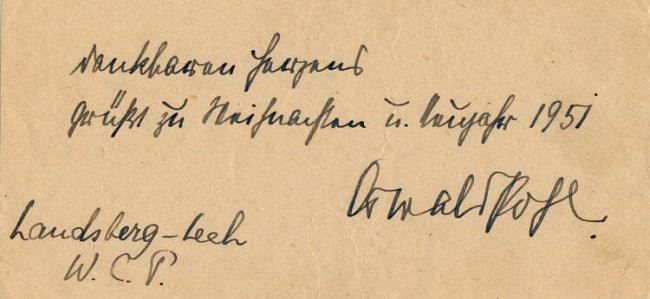 dankbaren Herzens
grüßt zu Weihnachten u. Neujahr 1951
Oswald Pohl.
Landsberg-Lech
W. C. P.